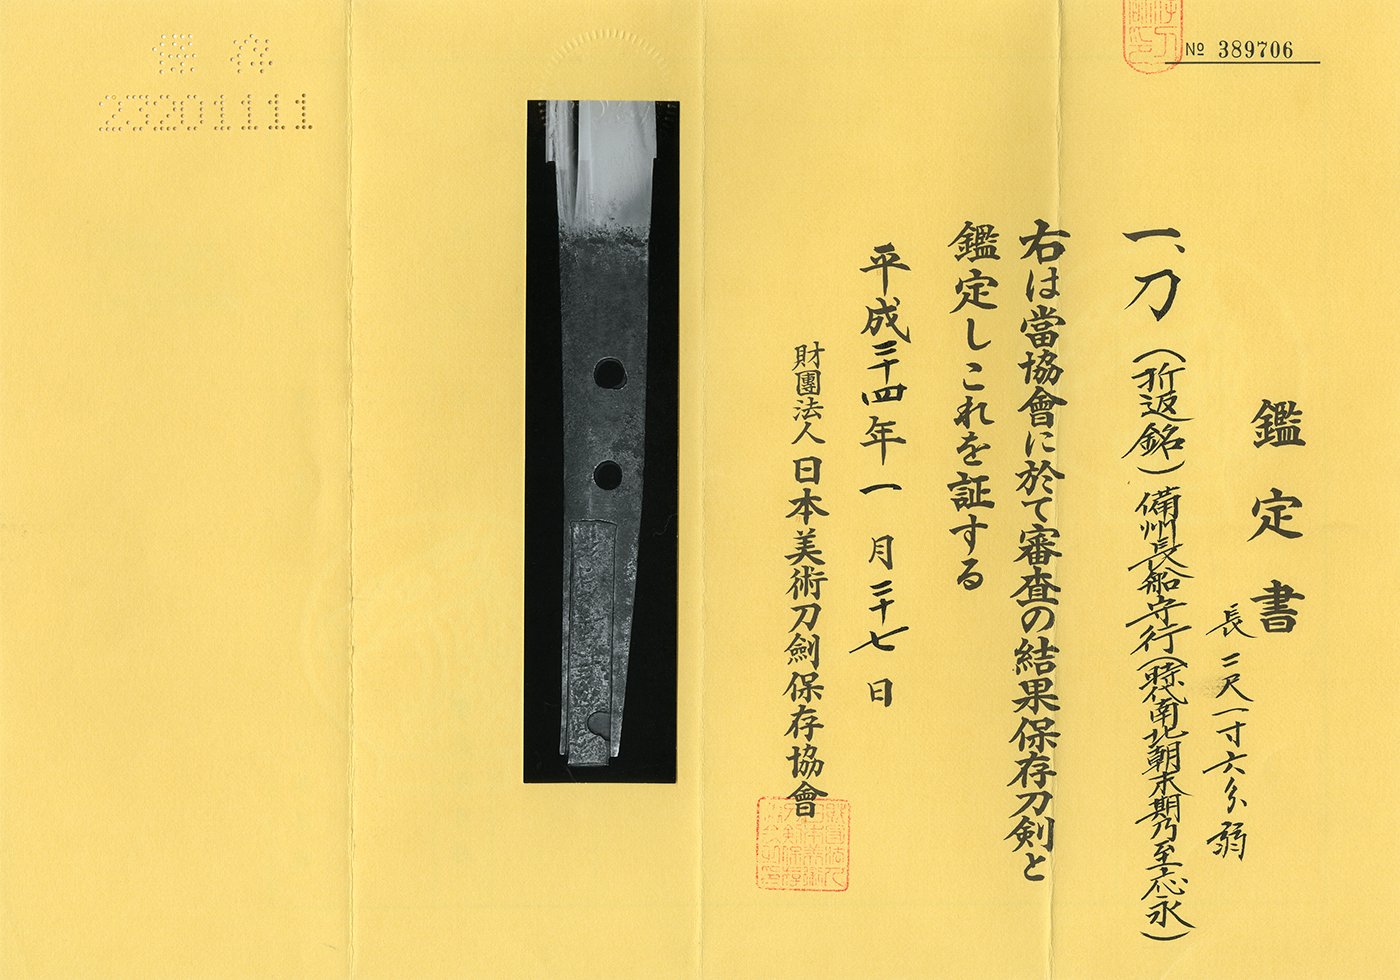 No 389706
鑑定書
長二尺一寸六分弱
一、刀(折返銘)備州長船守行(時代南北朝末期乃至応永)
右は當協會に於て審査の結果保存刀剣と
鑑定しこれを証する
平成二十四年一月二十七日
財團法人日本美術刀劍保存協會
保存
23201111